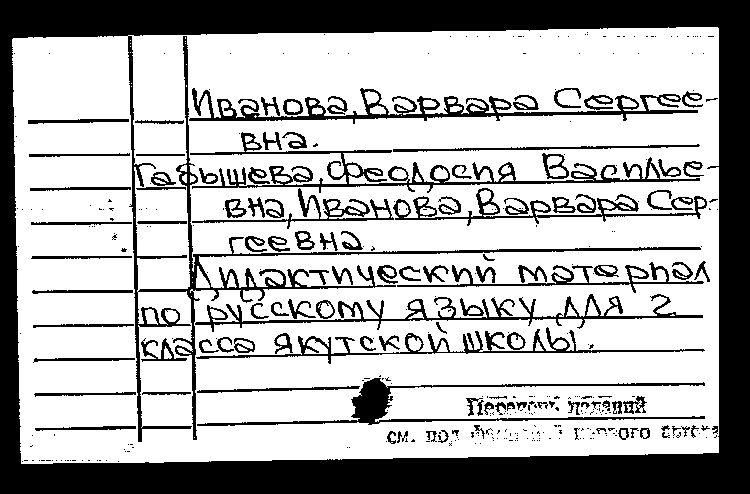 Иванова, Варвара Сергее-
вна.
Габышева, Феодосия Василье-
вна, Иванова, Варвара Сер-
геевна.
Дидактический материал
по русскому языку для 2
класса якутской школы.
Перечень изданий
см. под фамилией первого автора